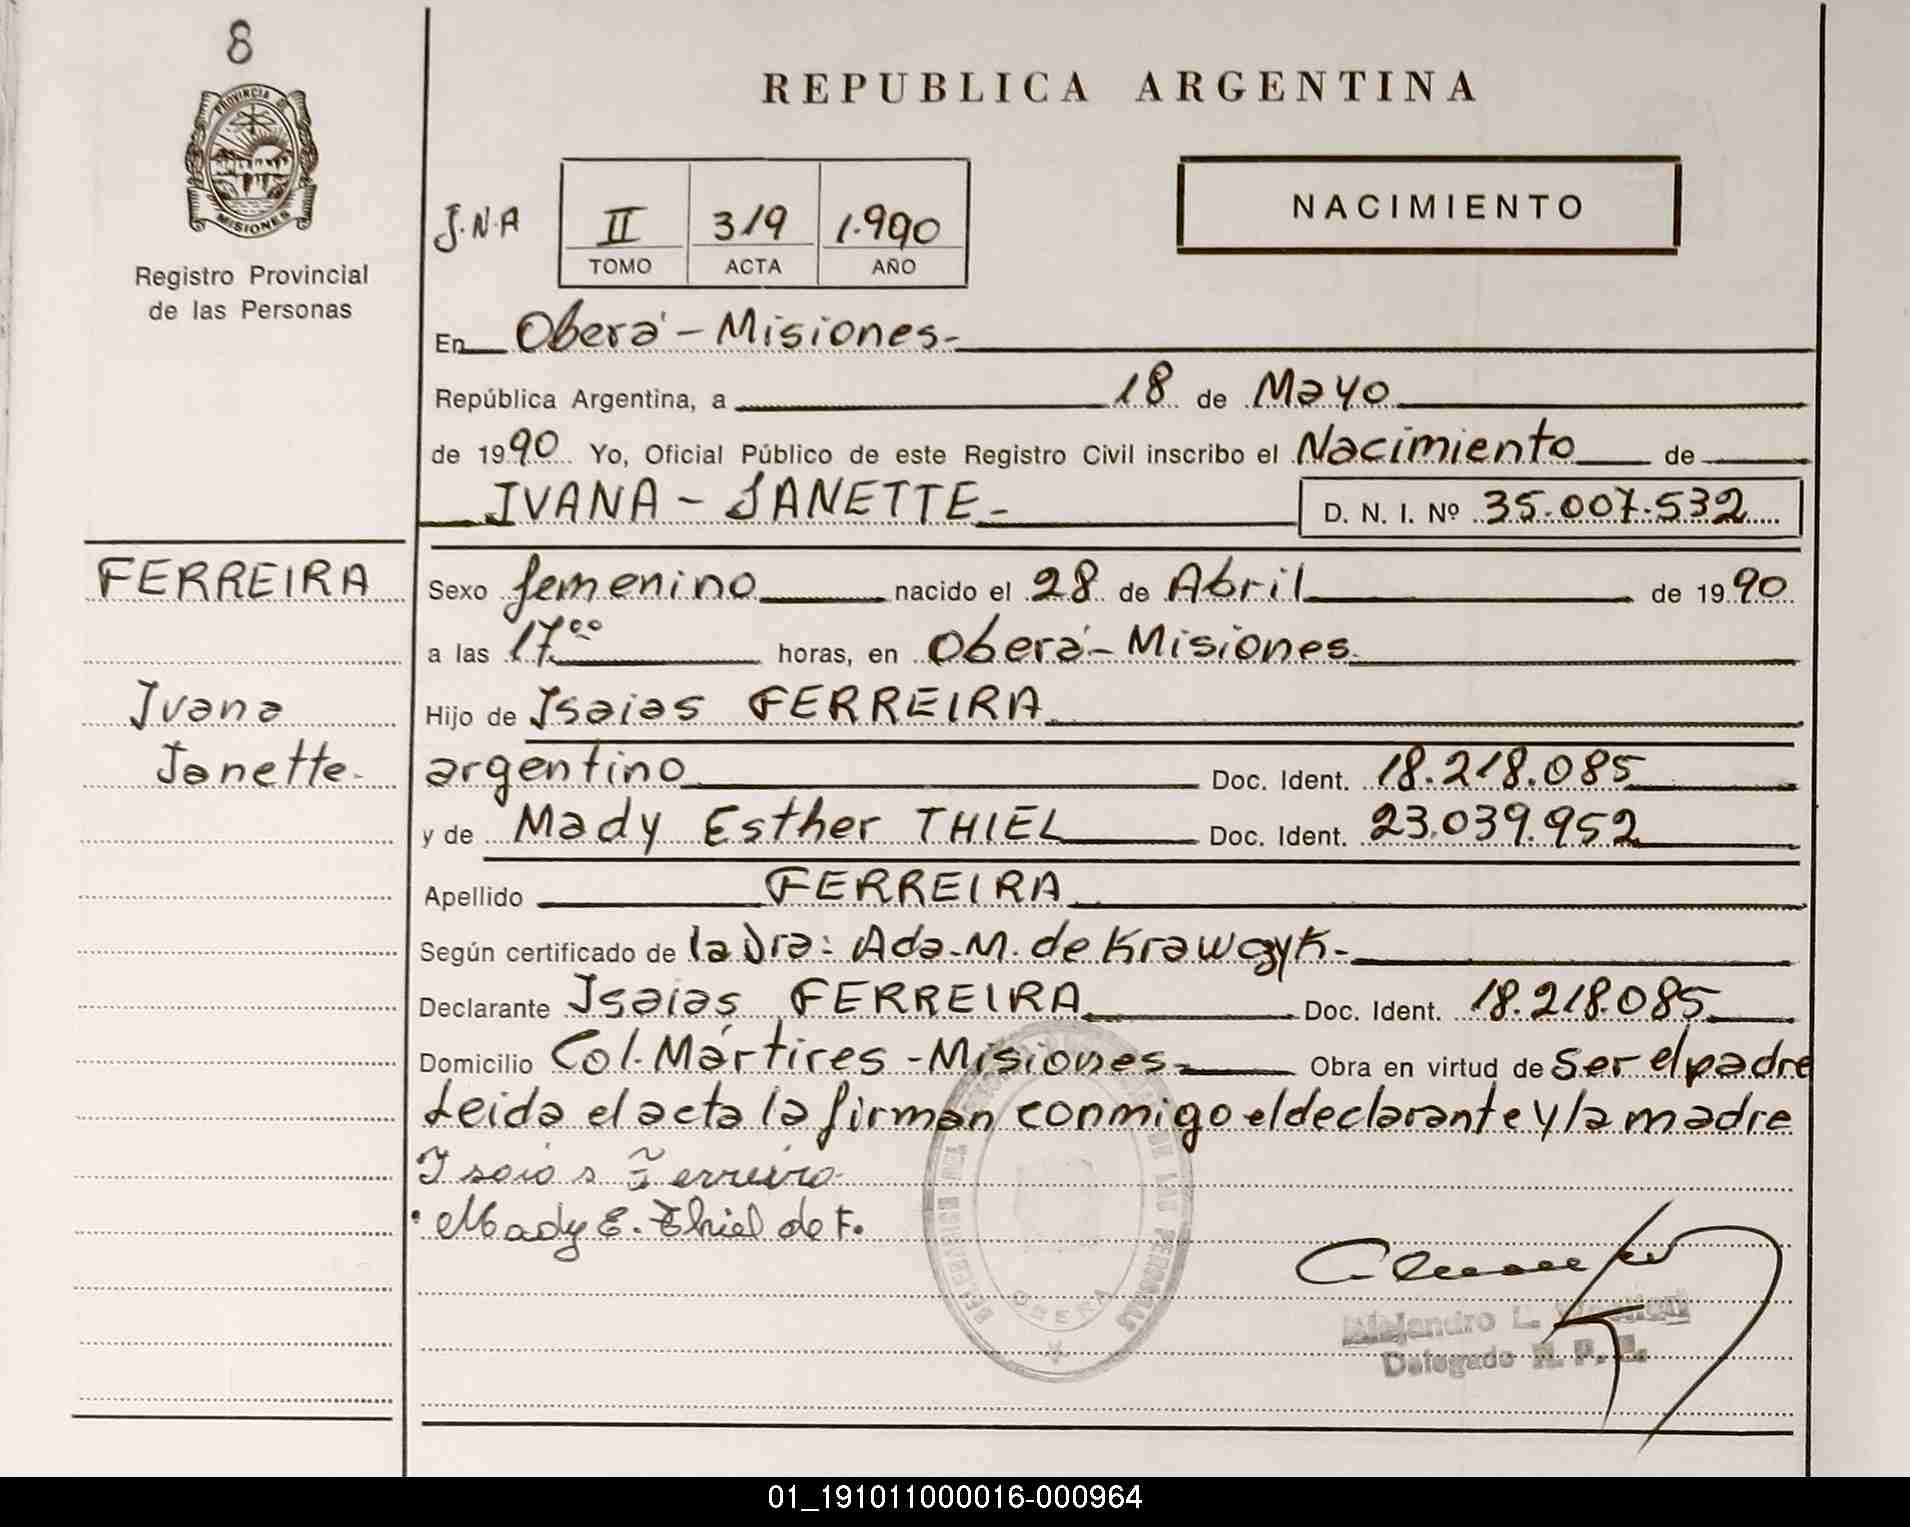 8
PROVINCIA DE
MISIONES
Registro Provincial
de las Personas
REPUBLICA ARGENTINA
NACIMIENTO
J.N.A
II 319 1.990
TOMO ACTA AÑO
En Oberá - Misiones-
República Argentina, a 18 de Mayo
de 1990 Yo, Oficial Público de este Registro Civil inscribo el Nacimiento de
IVANA - JANETTE- D. N. I. Nº 35.007.532
FERREIRA
Ivana
Janette-
Sexo femenino nacido el 28 de Abril de 1990
a las 17 00 horas, en Oberá - Misiones
Hijo de Isaias FERREIRA
argentino Doc. Ident. 18.218.085
y de Mady Esther THIEL Doc. Ident. 23.039.952
Apellido FERREIRA
Según certificado de la Dra: Ada-M. de Krawczyk-
Declarante Isaias FERREIRA Doc. Ident. 18.218.085
Domicilio Col. Mártires - Misiones- Obra en virtud de ser el padre
Leida el acta la firman conmigo el declarante y la madre
Isaias Ferreira
Mady E. Thiel de F.
DELEGACION DEL DE LAS PERSONAS
OBERA
Alejandro L.
Delegado R. P. P.
01_191011000016-000964